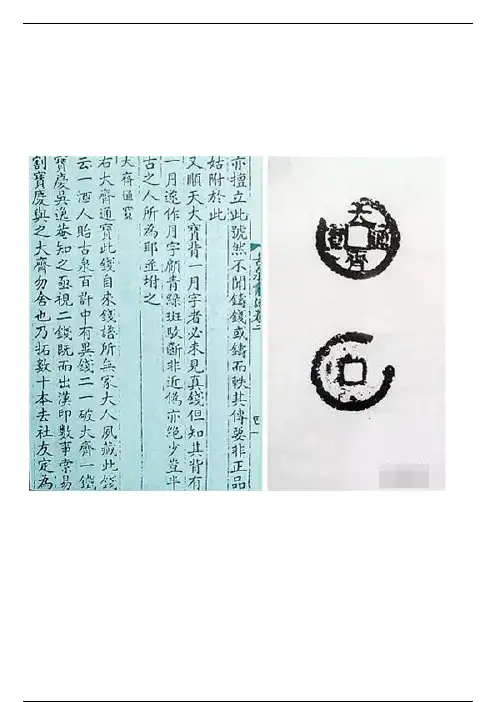 亦擅立此號然不聞鑄錢或鑄而軼其傳要非正品
姑附於此
又順天大寶背一月字者必未見真錢但知其背有
一月遂作月字顧青綠斑駁斷非近僞亦絶少豈半
古之人所為耶並坿之
大齊通寶
右大齊通寶此錢自來錢譜所無家大人夙藏此錢
云一酒人貽古泉百許中有異錢二一破大齊一鐵
寶慶吳逸菴知之亟視二錢既而出漢印數事索易
割寶慶與之大齊勿舍也乃拓數十本去社友定為
大齊通寶